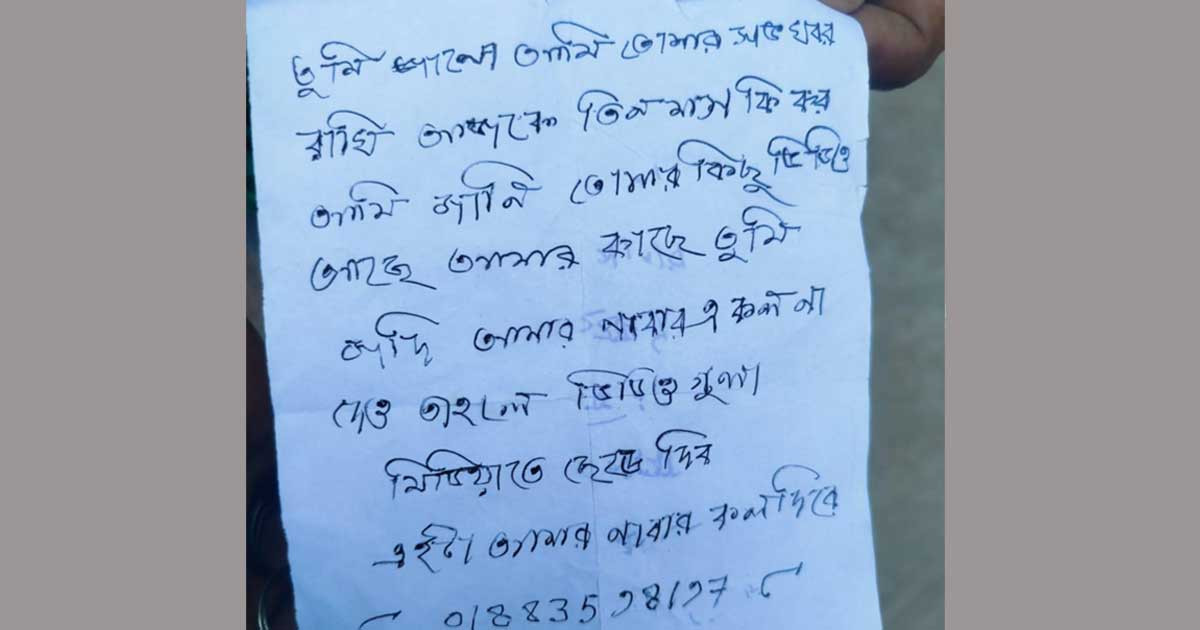 তুমি জানো আমি তোমার সব খবর
রাখি আজকে তিন মাস কি কর
আমি জানি তোমার কিছু ভিডিও
আছে আমার কাছে তুমি
জদি আমার নাবার এ কল না
দেও তাহলে ভিডিও গুলা
মিডিয়াতে ছেড়ে দিব
এইটা আমার নাবার কল দিবে